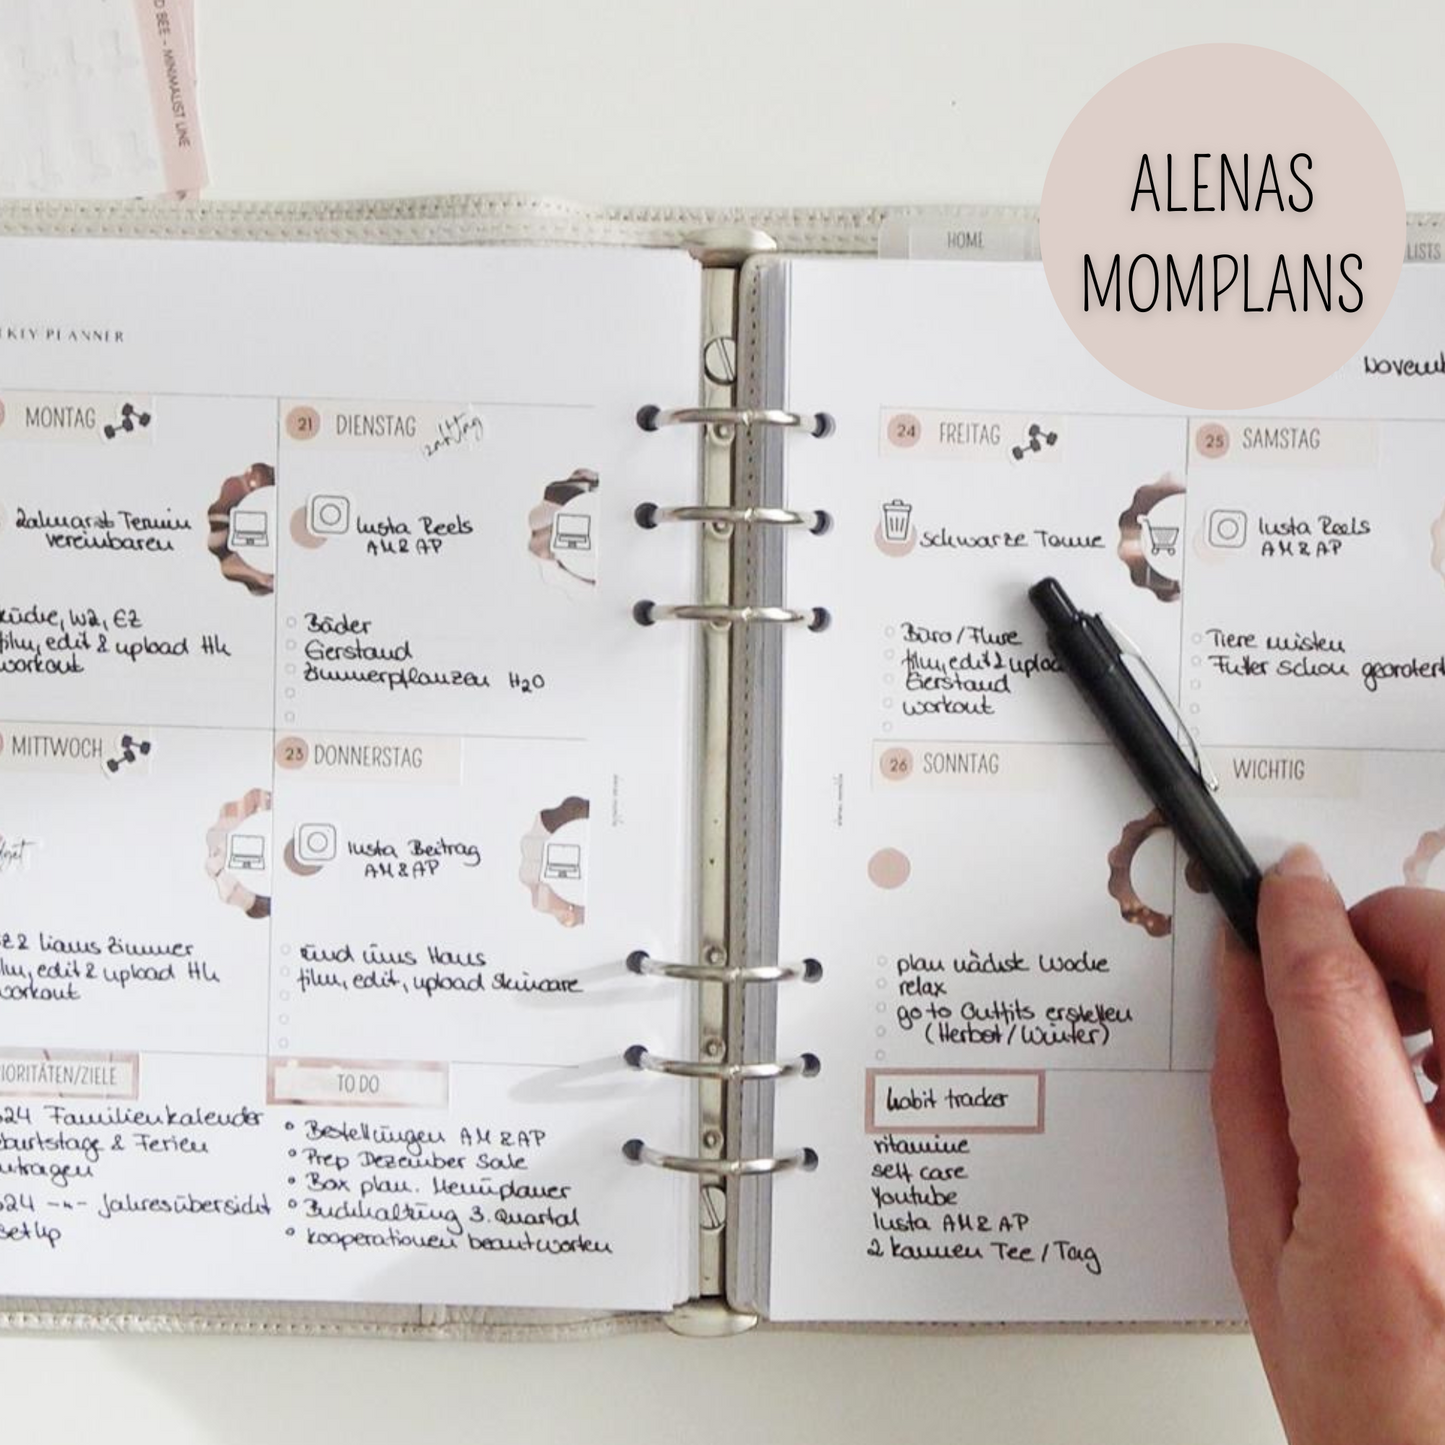 D BEE - MINIMALIST LINE
ALENAS
MOMPLANS
HOME
LISTS
KLY PLANNER
MONTAG
Zahnarzt Termin
vereinbaren
küche, WZ, EZ
film, edit & upload HK
workout
21 DIENSTAG
Insta Reels
AM & AP
Bäder
Gerstand
Zimmerpflanzen H2O
MITTWOCH
liams Zimmer
film, edit & upload HK
workout
23 DONNERSTAG
Insta Beitrag
AM & AP
rund ums Haus
film, edit, upload skincare
IORITÄTEN/ZIELE
24 Familienkalender
burtstage & Ferien
ntragen
24 -"- Jahresübersicht
setup
TO DO
Bestellungen AM & AP
Prep Dezember Sale
Box plan. Menüplaner
Buchhaltung 3. Quartal
kooperationen beantworten
Novemb
24 FREITAG
schwarze Tonne
Büro / Flure
film, edit & uploa
Gerstand
workout
25 SAMSTAG
Insta Reels
AM & AP
Tiere misten
Futter schon geordert
26 SONNTAG
plan nächste Woche
relax
go to Outfits erstellen
(Herbst / Winter)
WICHTIG
habit tracker
vitamine
self care
Youtube
Insta AM & AP
2 kannen Tee / Tag